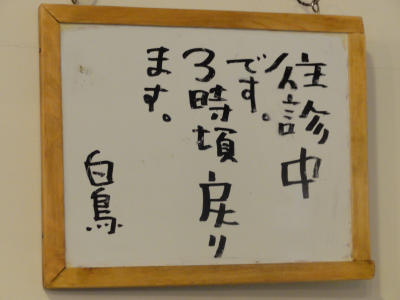 往診中
です。
3時頃戻り
ます。
白鳥